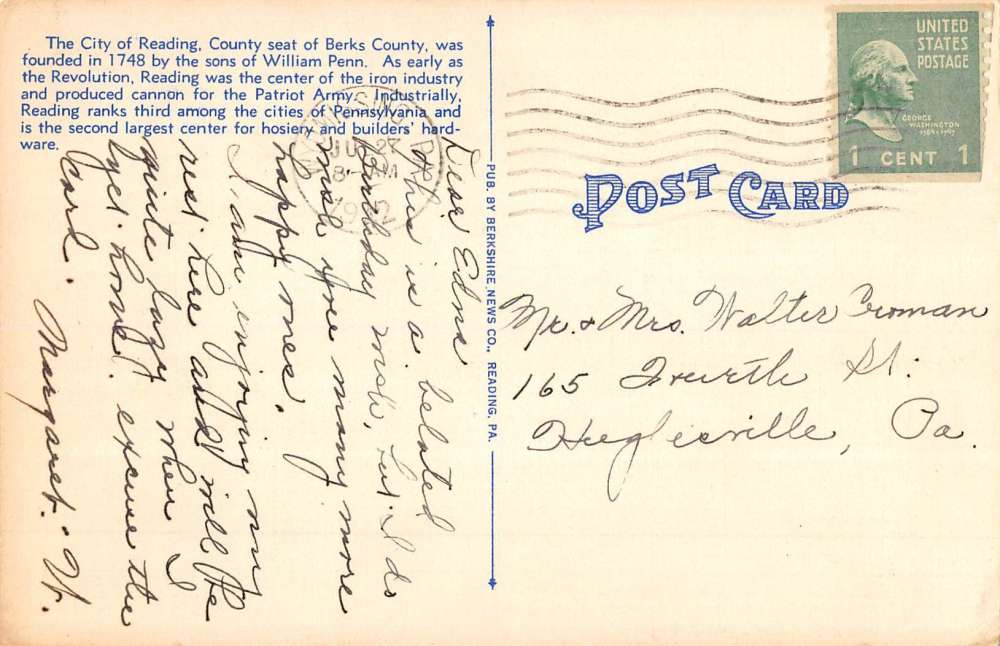 The City of Reading, County seat of Berks County, was
founded in 1748 by the sons of William Penn. As early as
the Revolution, Reading was the center of the iron industry
and produced cannon for the Patriot Army. Industrially,
Reading ranks third among the cities of Pennsylvania and
is the second largest center for hosiery and builders' hard-
ware.
Dear Edna
This is a belated
birthday wish, but I do
wish you many more
happy ones.
I am enjoying my
rest here and will be
quite lazy when I
get home. excuse the
card.
Margaret. W.
PUB. BY BERKSHIRE NEWS CO., READING, PA.
UNITED
STATES
POSTAGE
GEORGE
WASHINGTON
1 CENT 1
POST CARD
Mr. & Mrs. Walter Croman
165 Fourth St.
Huglesville, Pa.